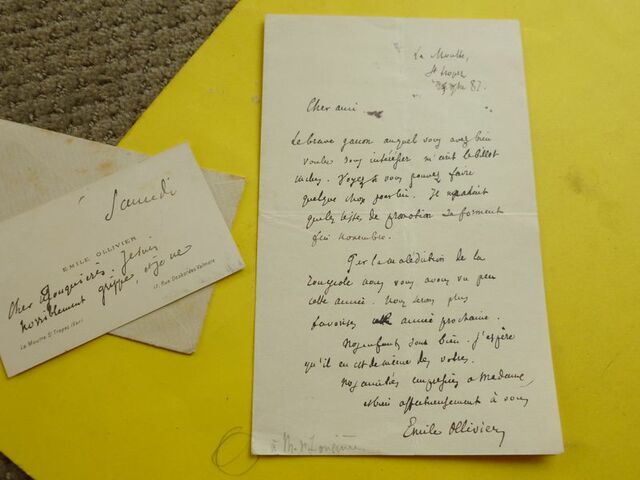 Samedi
EMILE OLLIVIER
Cher Jonquières. Je suis
horriblement grippé, et je ne
La Moutte St Tropez (Var)
17, Rue Desbordes-Valmore
La Moutte,
St Tropez
87.
Cher ami
Le brave garçon auquel vous avez bien
voulu vous intéresser m'écrit le billot
inclus. Voyez si vous pouvez faire
quelque chose pour lui. Je
que les listes de promotion se forment
fin novembre.
Par la malédiction de la
nous vous avons vu peu
cette année. Nous serons plus
favorisés année prochaine.
Nos enfants sont bien. J'espère
qu'il en est de même des vôtres.
Nos amitiés empressées à Madame,
et bien affectueusement à vous
Emile Ollivier
à M.